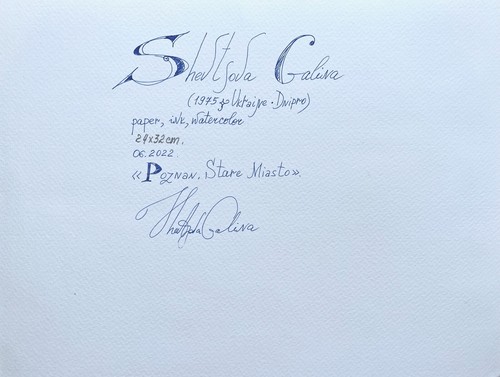 Shevtsova Galina
(1975 р Ukraine · Dnipro)
paper, ink, watercolor
24x32cm.
06.2022.
«Poznan. Stare Miasto».
Shevtsova Galina